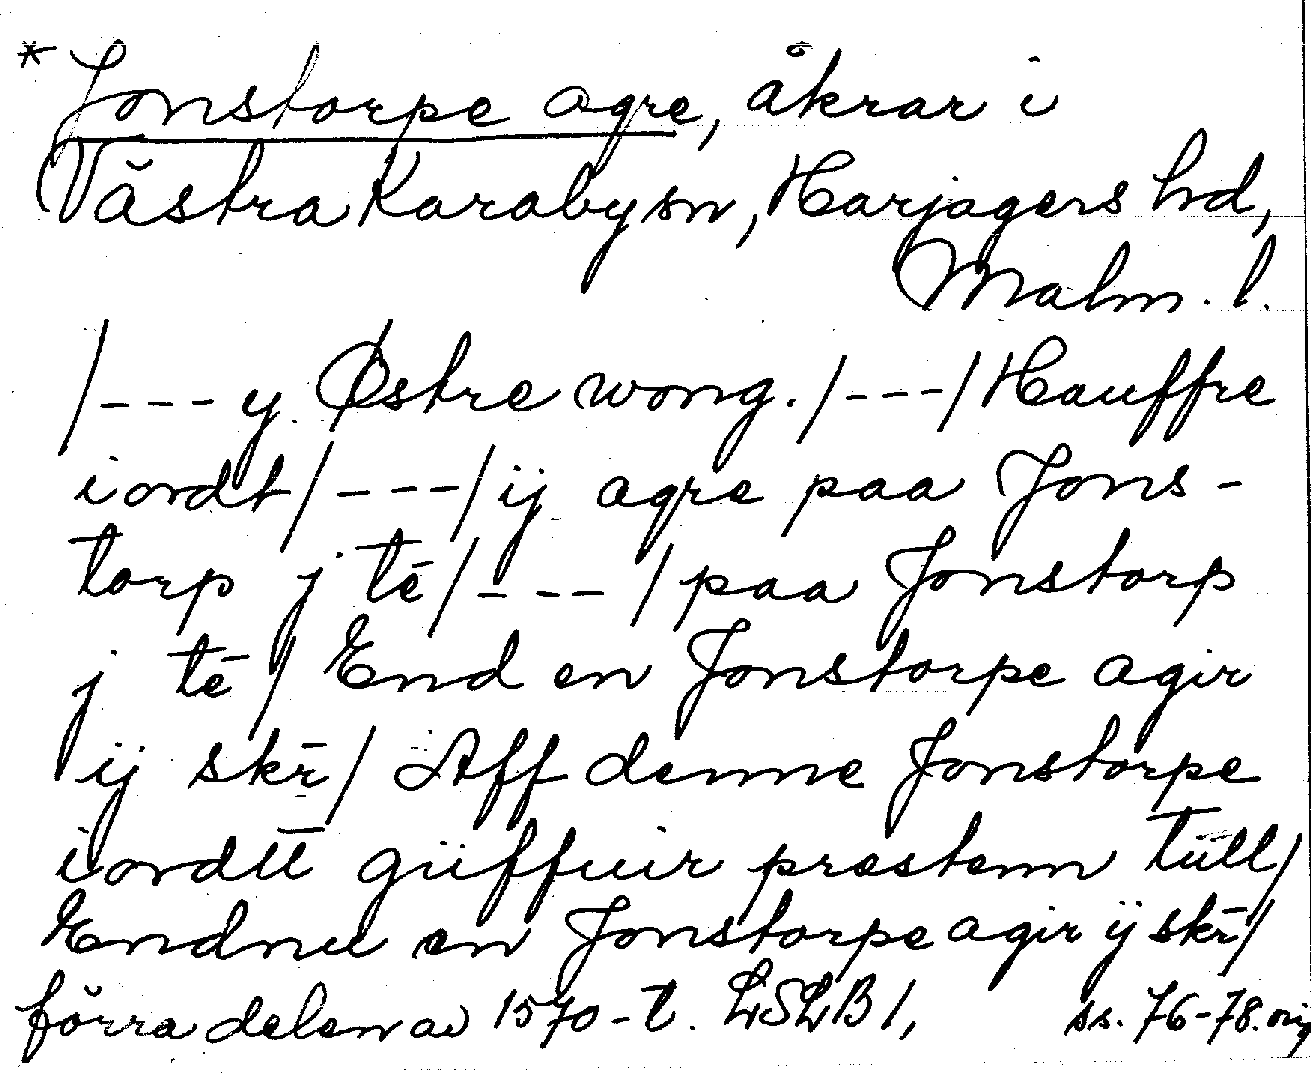 * Jonstorpe agre, åkrar i
Västra Karaby sn, Harjagers hd,
Malm. l.
/--- y Østre wong. /---/ Hauffre
iordt /---/ ij agre paa Jons-
torp j tē /---/ paa Jonstorp
j tē / End en Jonstorpe agir
ij skr̄ / Aff denne Jonstorpe
iordtt güffuir prestenn tüll /
Endnu en Jonstorpe agir ij skr̄ /
förra delen av 1570-t. LSLB 1, ss. 76-78. orig